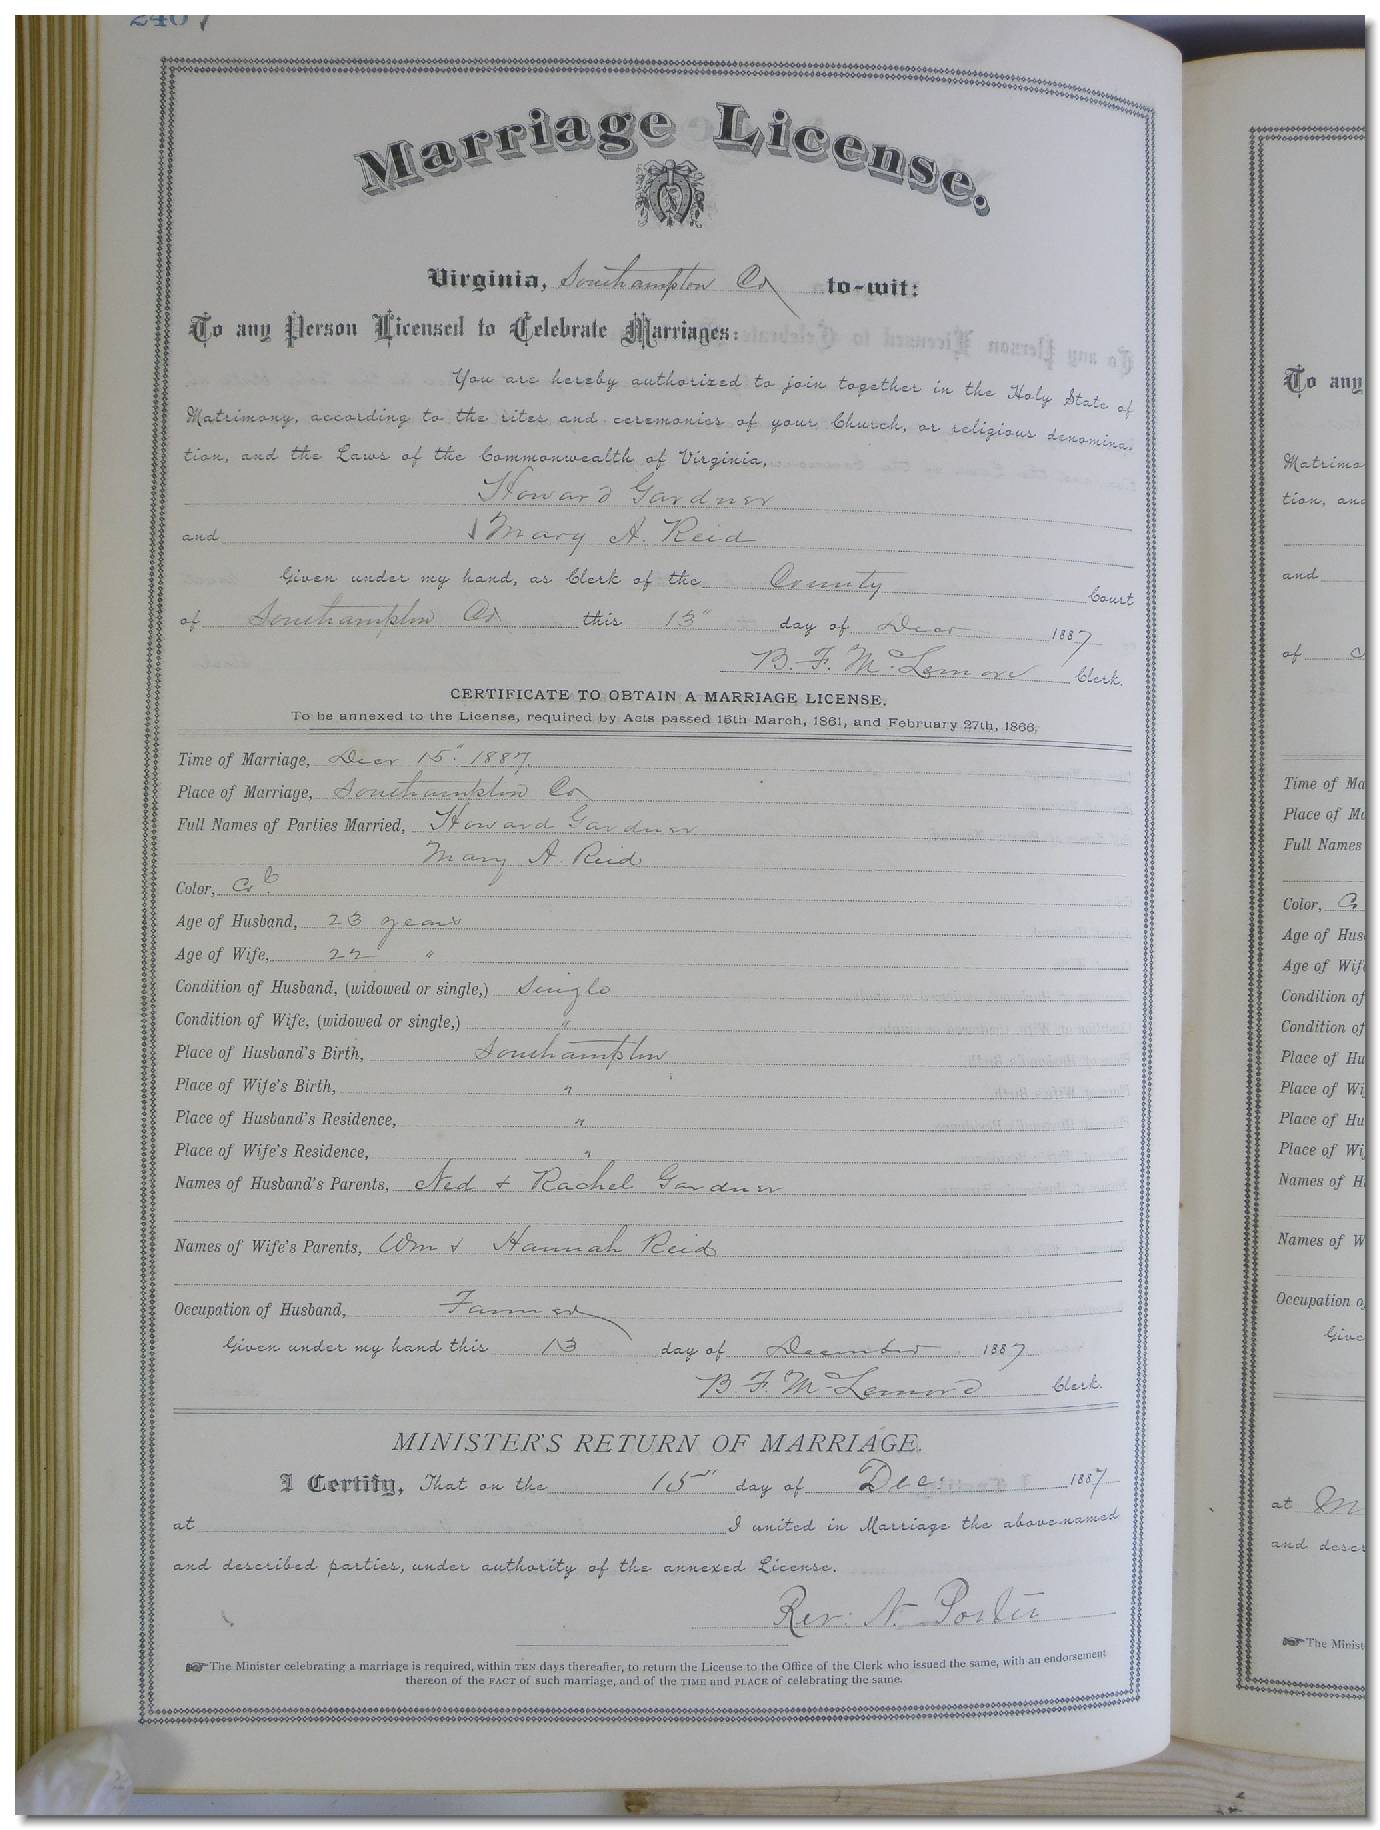 Marriage License.
Virginia, Southampton Co to-wit:
To any Person Licensed to Celebrate Marriages:
You are hereby authorized to join together in the Holy State of
Matrimony, according to the rites and ceremonies of your Church, or religious denomina-
tion, and the Laws of the Commonwealth of Virginia,
Howard Gardner
and Mary A. Reid
Given under my hand, as Clerk of the County Court
of Southampton Co this 13" day of Decr 1887
B. F. McLemore Clerk.
CERTIFICATE TO OBTAIN A MARRIAGE LICENSE.
To be annexed to the License, required by Acts passed 16th March, 1861, and February 27th, 1866,
Time of Marriage, Decr 15" 1887.
Place of Marriage, Southampton Co
Full Names of Parties Married, Howard Gardner
Mary A Reid
Color, Cold
Age of Husband, 23 years
Age of Wife, 22 "
Condition of Husband, (widowed or single,) Single
Condition of Wife, (widowed or single,) "
Place of Husband's Birth, Southampton
Place of Wife's Birth, "
Place of Husband's Residence, "
Place of Wife's Residence, "
Names of Husband's Parents, Ned & Rachel Gardner
Names of Wife's Parents, Wm & Hannah Reid
Occupation of Husband, Farmer
Given under my hand this 13 day of December 1887
B F. McLemore Clerk.
MINISTER'S RETURN OF MARRIAGE.
I Certify, That on the 15" day of Dec: 1887
at I united in Marriage the above-named
and described parties, under authority of the annexed License.
Rev: N. Porter
☞The Minister celebrating a marriage is required, within TEN days thereafter, to return the License to the Office of the Clerk who issued the same, with an endorsement
thereon of the FACT of such marriage, and of the TIME and PLACE of celebrating the same.
To any
Matrimo
tion, and
and
of
Time of Ma
Place of Ma
Full Names
Color, Co
Age of Hus
Age of Wife
Condition of
Condition of
Place of Hu
Place of Wi
Place of Hu
Place of Wi
Names of H
Names of W
Occupation o
Give
at M
and descr
☞The Minist